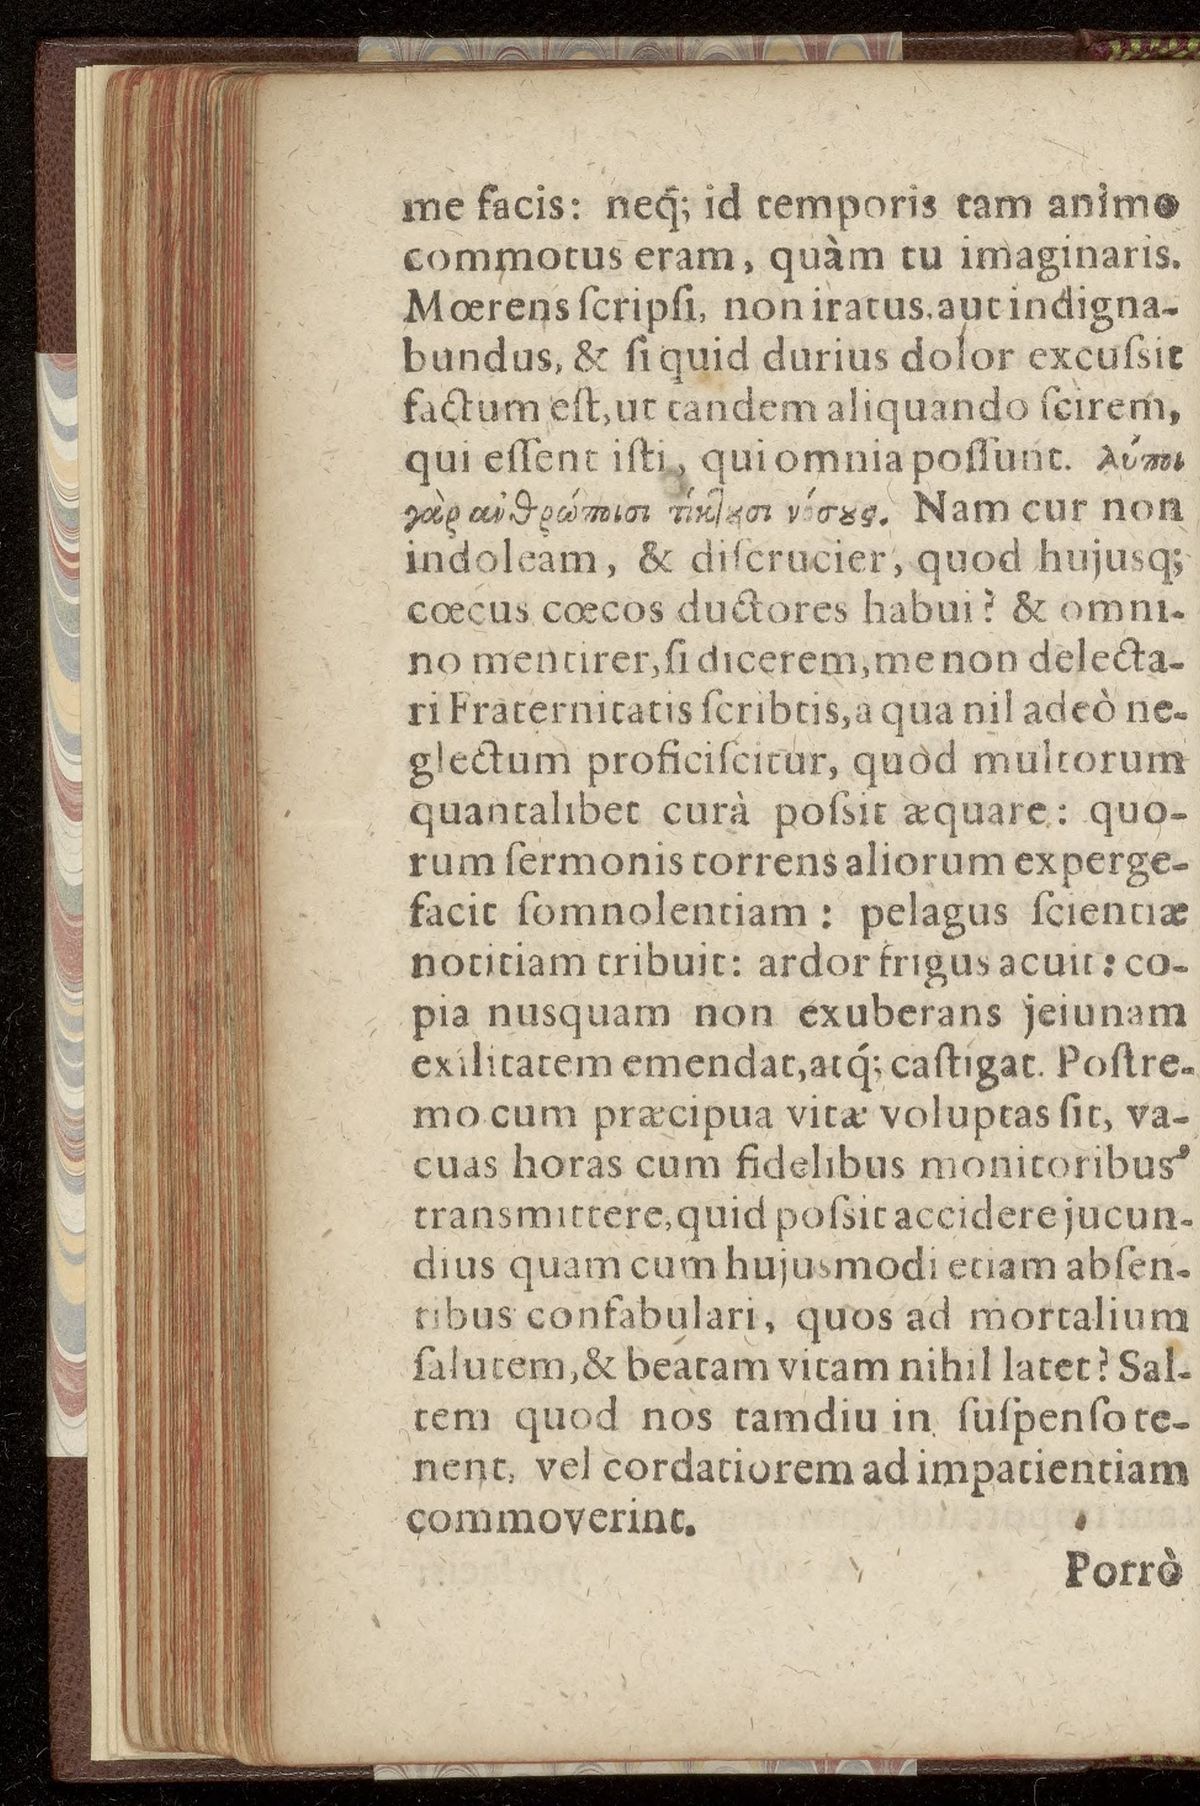 me facis: neq́; id temporis tam animo
commotus eram, quàm tu imaginaris.
Mœrens ſcripſi, non iratus. aut indigna-
bundus, & ſi quid durius dolor excuſsit
factum eſt, ut tandem aliquando ſcirem,
qui eſſent iſti, qui omnia poſſunt. λύποι
γὰρ ἀνθρώποισι τίκλουσι νόσους. Nam cur non
indoleam, & diſcrucier, quod hujusq;
cœcus cœcos ductores habui? & omni-
no mentirer, ſi dicerem, me non delecta-
ri Fraternitatis ſcribtis, a qua nil adeò ne-
glectum proficiſcitur, quòd multorum
quantalibet curà poſsit æquare: quo-
rum ſermonis torrens aliorum experge-
facit ſomnolentiam: pelagus ſcientiæ
notitiam tribuit: ardor frigus acuit: co-
pia nusquam non exuberans jeiunam
exilitatem emendat, atq́; caſtigat. Poſtre-
mo cum præcipua vitæ voluptas ſit, va-
cuas horas cum fidelibus monitoribus
transmittere, quid poſsit accidere jucun-
dius quam cum hujusmodi etiam abſen-
tibus confabulari, quos ad mortalium
ſalutem, & beatam vitam nihil latet? Sal-
tem quod nos tamdiu in ſuſpenſo te-
nent, vel cordatiorem ad impatientiam
commoverint.
Porrò